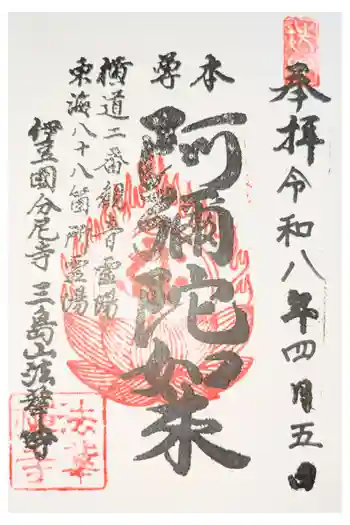 奉拝 令和八年四月五日
本尊
阿彌陀如来
横道二番観音霊場
東海八十八箇所霊場
伊豆國分尼寺 三島山法華寺
法華
寺